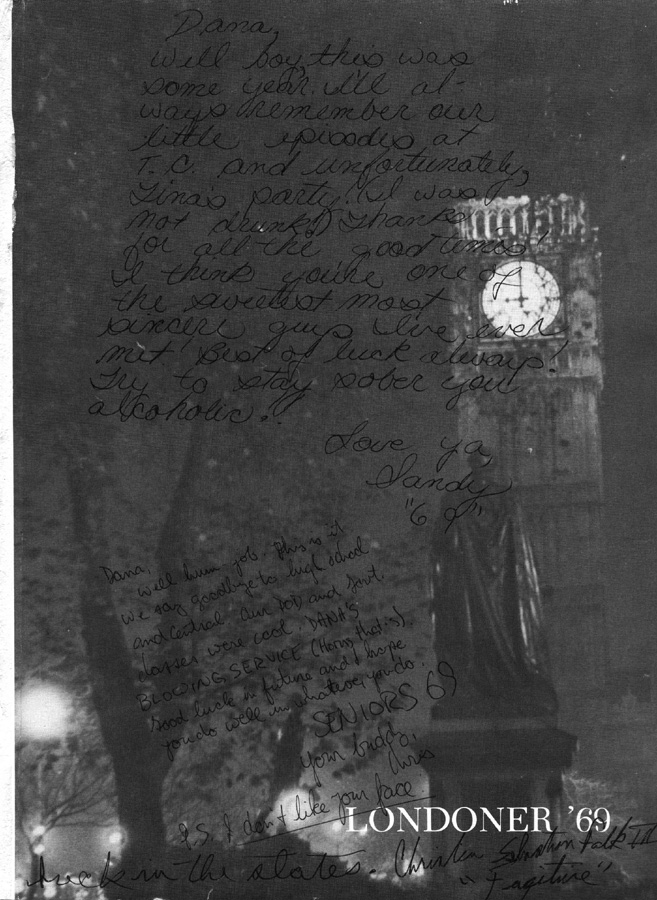 Dana,
Well boy, this was
some year. I'll al-
ways remember our
little episodes at
T.C. and unfortunately,
Tina's party. (I was
not drunk!) Thanks
for all the good times!
I think you're one of
the sweetest most
sincere guys I've ever
met! Best of luck always!
Try to stay sober you
alcoholic!!
Love ya,
Sandy
"69"
Dana,
Well hum job. This is it
we say goodbye to high school
and Central. Our and Govt.
classes were cool. DANA'S
BLOWING SERVICE (Horny that is)
Good luck in future and I hope
you do well in whatever you do.
SENIORS 69
Your buddy,
Chris
P.S. I don't like your face
LONDONER '69
luck in the states. Christian Sebastian Falk III
"Fugitive"